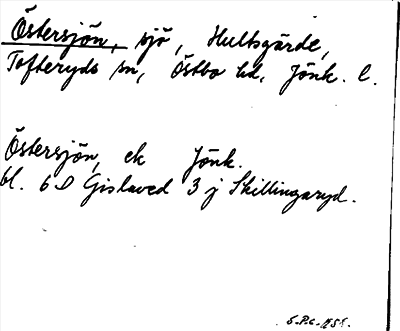 Östersjön, sjö, Hultsgärde,
Tofteryds sn, Östbo hd, Jönk. l.
Östersjön, ek Jönk.
bl. 6 D Gislaved 3 j Skillingaryd.